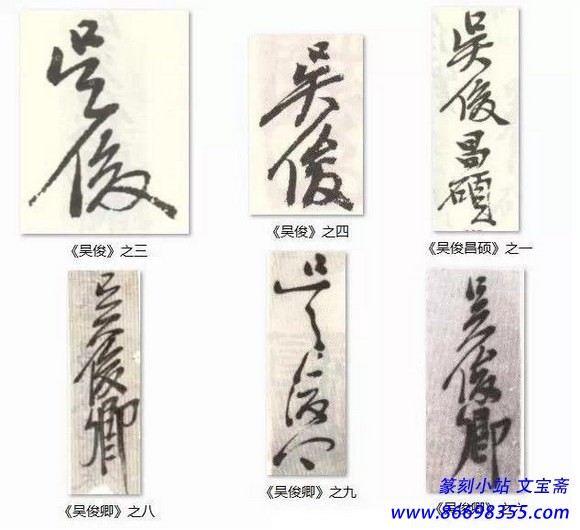 吴俊
吴俊
吴俊昌碩
《吴俊》之三
《吴俊》之四
《吴俊昌硕》之一
吴俊卿
吴俊卿
吴俊卿
《吴俊卿》之八
《吴俊卿》之九
《吴俊卿》之六
篆刻小站 文宝斋
www.86698355.com